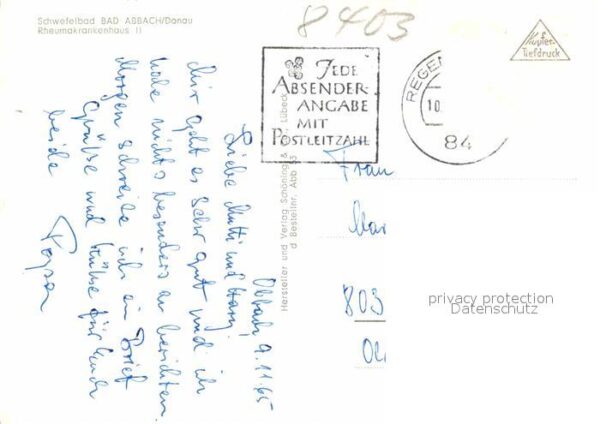 Schwefelbad BAD ABBACH/Donau
Rheumakrankenhaus II
8403
JEDE
ABSENDER
ANGABE
MIT
POSTLEITZAHL
REGEN
10.
84
Kupfer-
Tiefdruck
Abbach, 9.11.65
Liebe Mutti und
mir geht es sehr gut und ich
habe nichts besonders zu berichten
Morgen schreibe ich ein Brief
Grüße und Küsse für Euch
beide
Hersteller und Verlag Schöning & Lübeck
d Bestellnr. Abb 55
Frau
Mar
803
privacy protection
Datenschutz